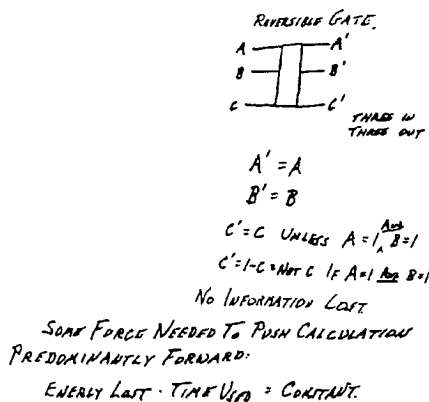 REVERSIBLE GATE.
A A'
B B'
C C'
THREE IN
THREE OUT
A' = A
B' = B
C' = C UNLESS A = 1 AND B = 1
C' = 1 - C = NOT C IF A = 1 AND B = 1
NO INFORMATION LOST
SOME FORCE NEEDED TO PUSH CALCULATION
PREDOMINANTLY FORWARD:
ENERGY LOST · TIME USED = CONSTANT.